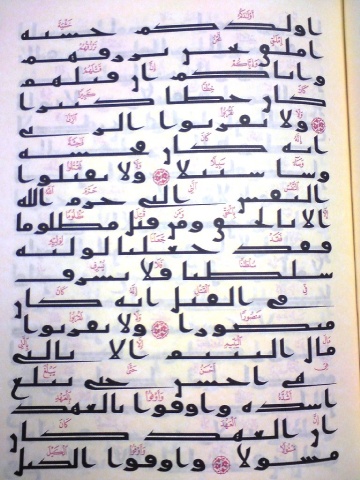 اولدكم خشيه
املق نحن نرزقهم
واياكم ان قتلهم
كان خطا كبيرا
ولا تقربوا الزنى
انه كان فحشه
وسا سبيلا ولا تقتلوا
النفس التى حرم الله
الا بالحق ومن قتل مظلوما
فقد جعلنا لوليه
سلطنا فلا يسرف
فى القتل انه كان
منصورا ولا تقربوا
مال اليتيم الا بالتى
هى احسن حتى يبلغ
اشده واوفوا بالعهد
ان العهد كان
مسولا واوفوا الكيل